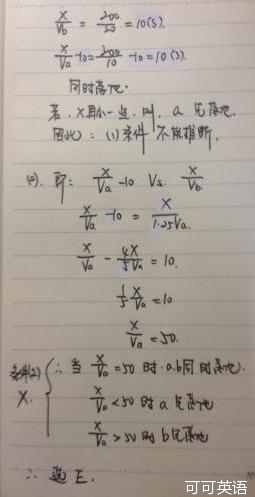 x/Vb = 200/20 = 10(s).
x/Va -10 = 200/10 -10 = 10 (s).
同时落地.
若 x再小一点, 则, a 先落地.
因此: (1)条件 不能推断.
(2). 即: x/Va -10 Vs. x/Vb
x/Va -10 = x/1.25Va.
x/Va - 4x/5Va = 10.
1/5 x/Va = 10
x/Va = 50.
条件(2) ∴ 当 x/Va = 50 时 a.b同时落地.
X. x/Va < 50 时 a 先落地
x/Va > 50 时 b先落地
∴ 选 E.
可可英语